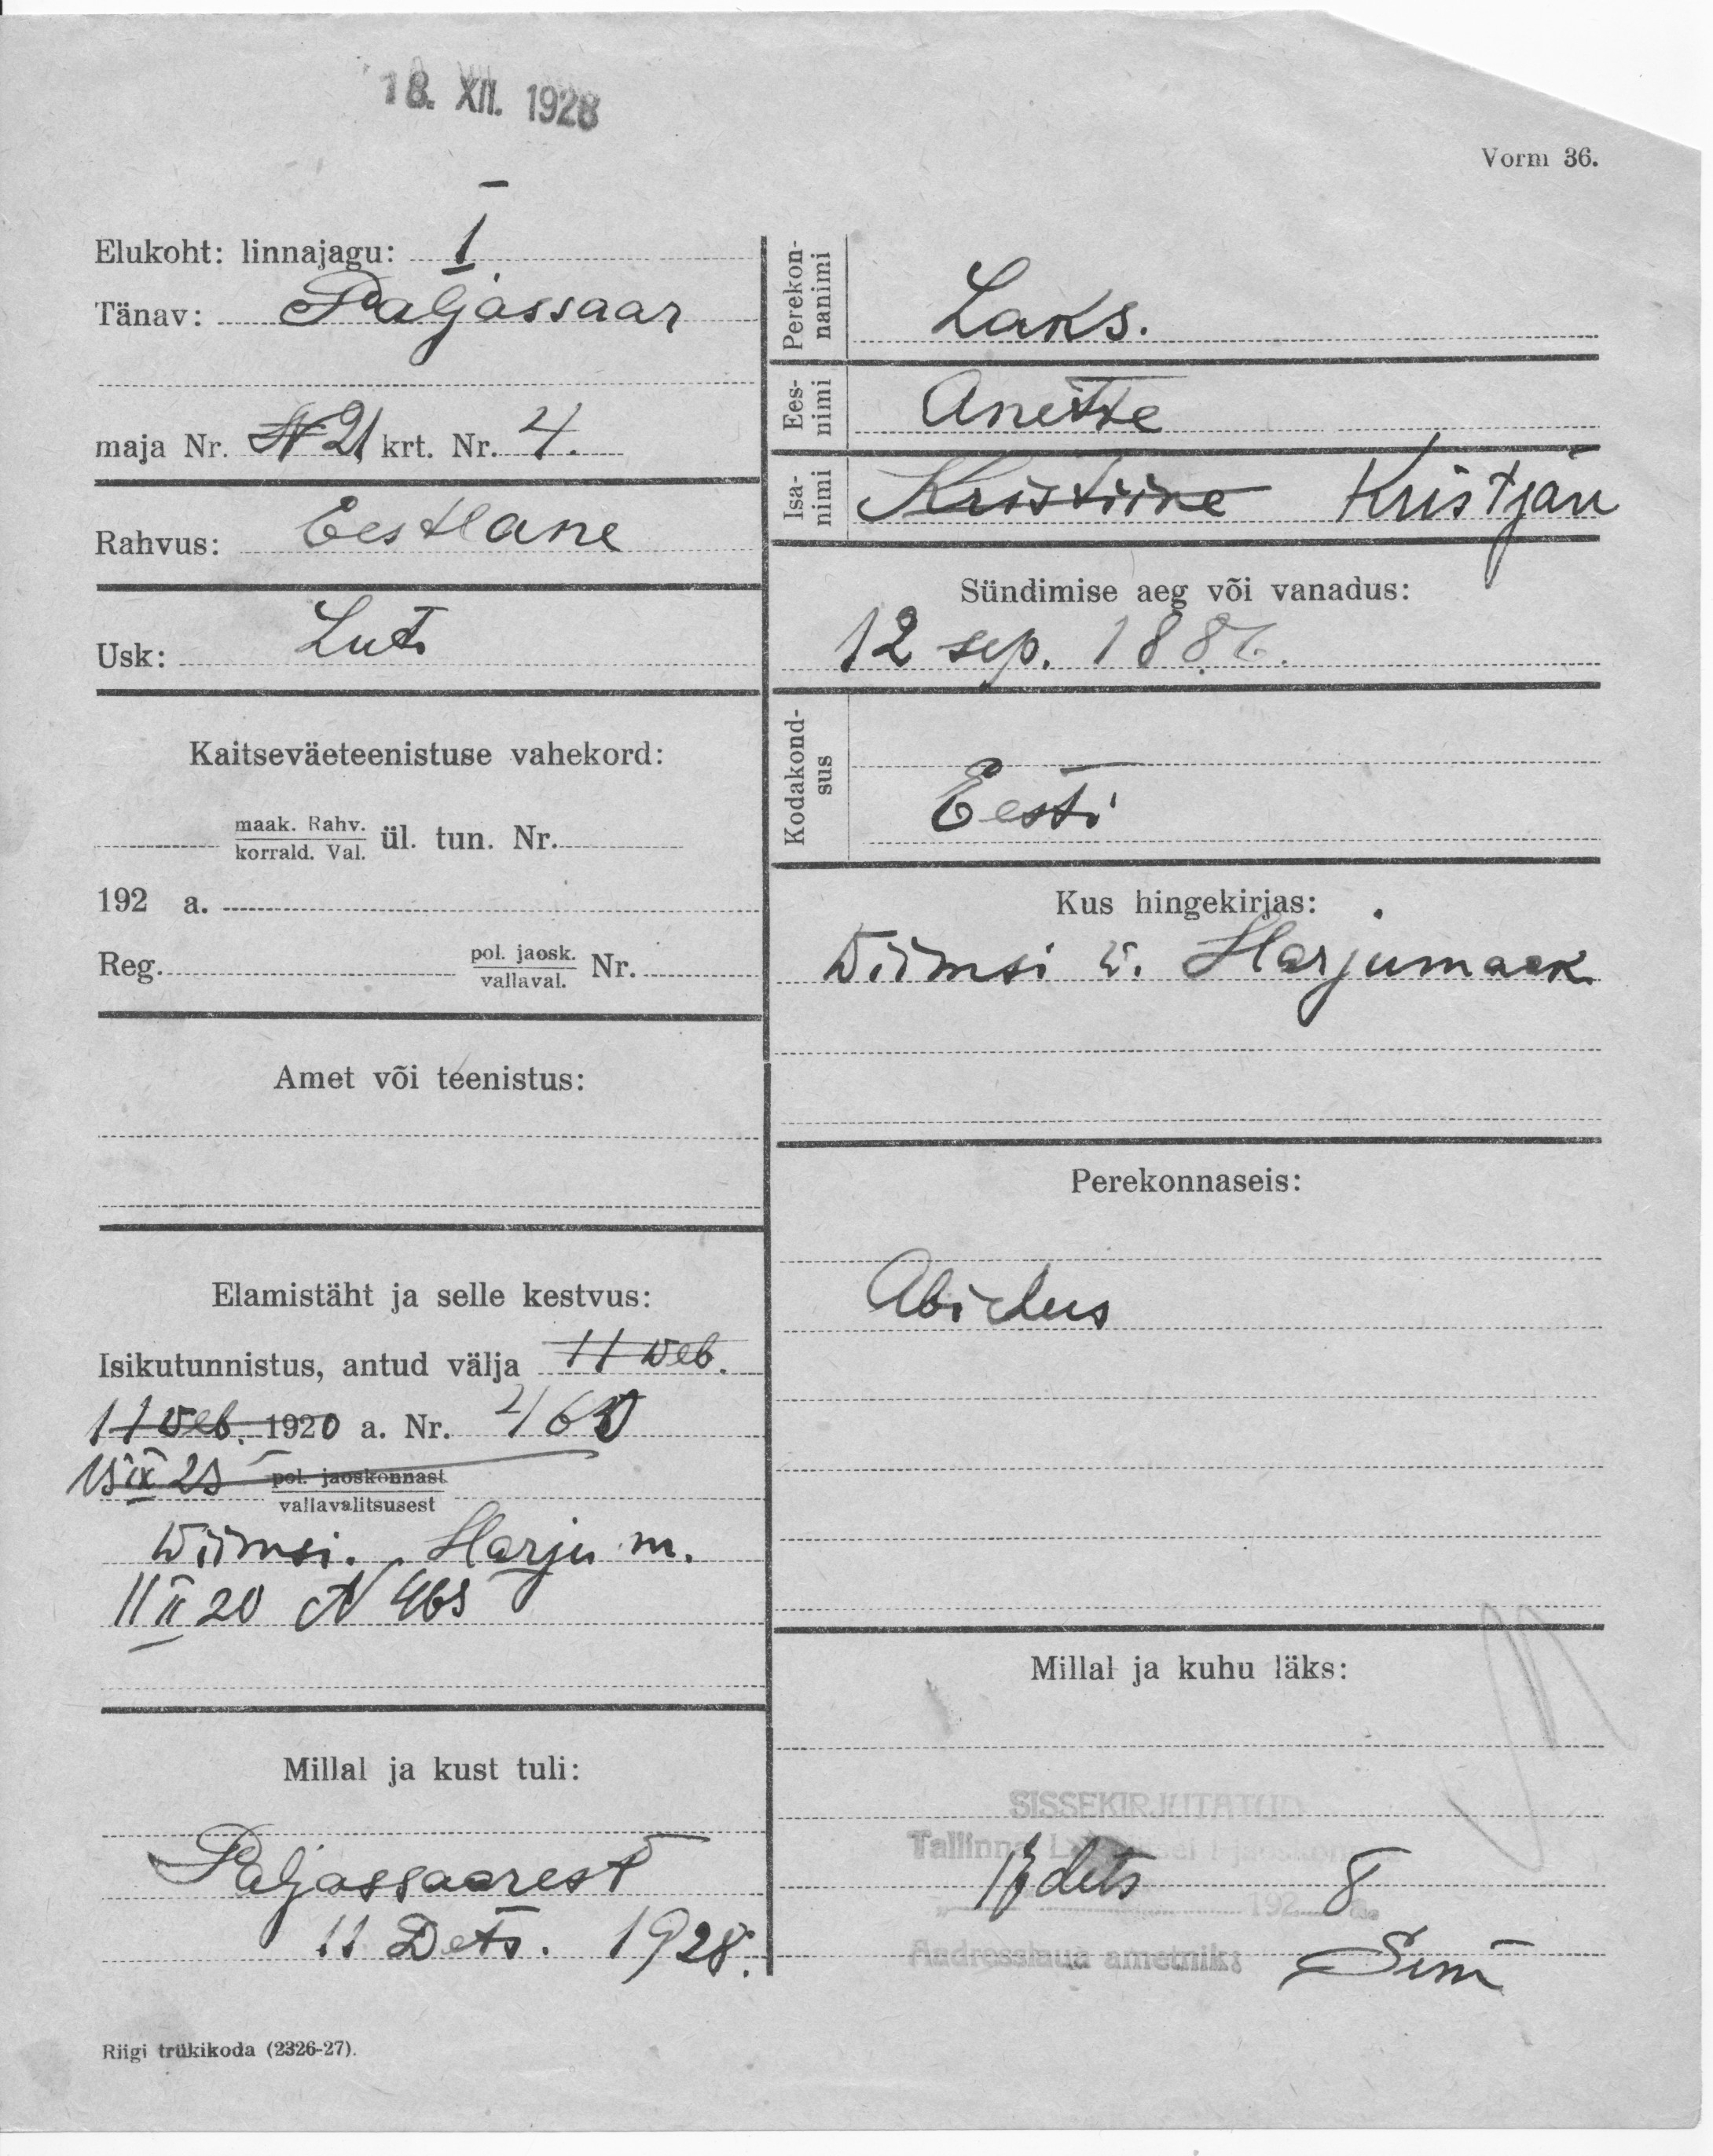 18. XII. 1928
Vorm 36.
Elukoht: linnajagu: I
Tänav: Paljassaar
maja Nr. N 21 krt. Nr. 4.
Rahvus: Eestlane
Usk: Lut.
Kaitseväeteenistuse vahekord:
maak. Rahv.
korrald. Val. ül. tun. Nr.
192 a.
Reg. pol. jaosk.
vallaval. Nr.
Amet või teenistus:
Elamistäht ja selle kestvus:
Isikutunnistus, antud välja 11 web.
11 web. 1920 a. Nr. 460
15 IX 25 pol. jaoskonnast
vallavalitsusest
Wiimsi. Harju m.
11 II 20 N 465
Millal ja kust tuli:
Paljassaarest
11 Dets. 1928.
Riigi trükikoda (2326-27).
Perekon-
nanimi Laks.
Ees-
nimi Anette
Isa-
nimi Kristiine Kristjan
Sündimise aeg või vanadus:
12 sep. 1886.
Kodakond-
sus
Eesti
Kus hingekirjas:
Wiimsi w. Harjumaak
Perekonnaseis:
Abielus
Millal ja kuhu läks:
SISSEKIRJUTATUD
Tallinna
dets 192 8 a.
Aadresslaua ametnik: